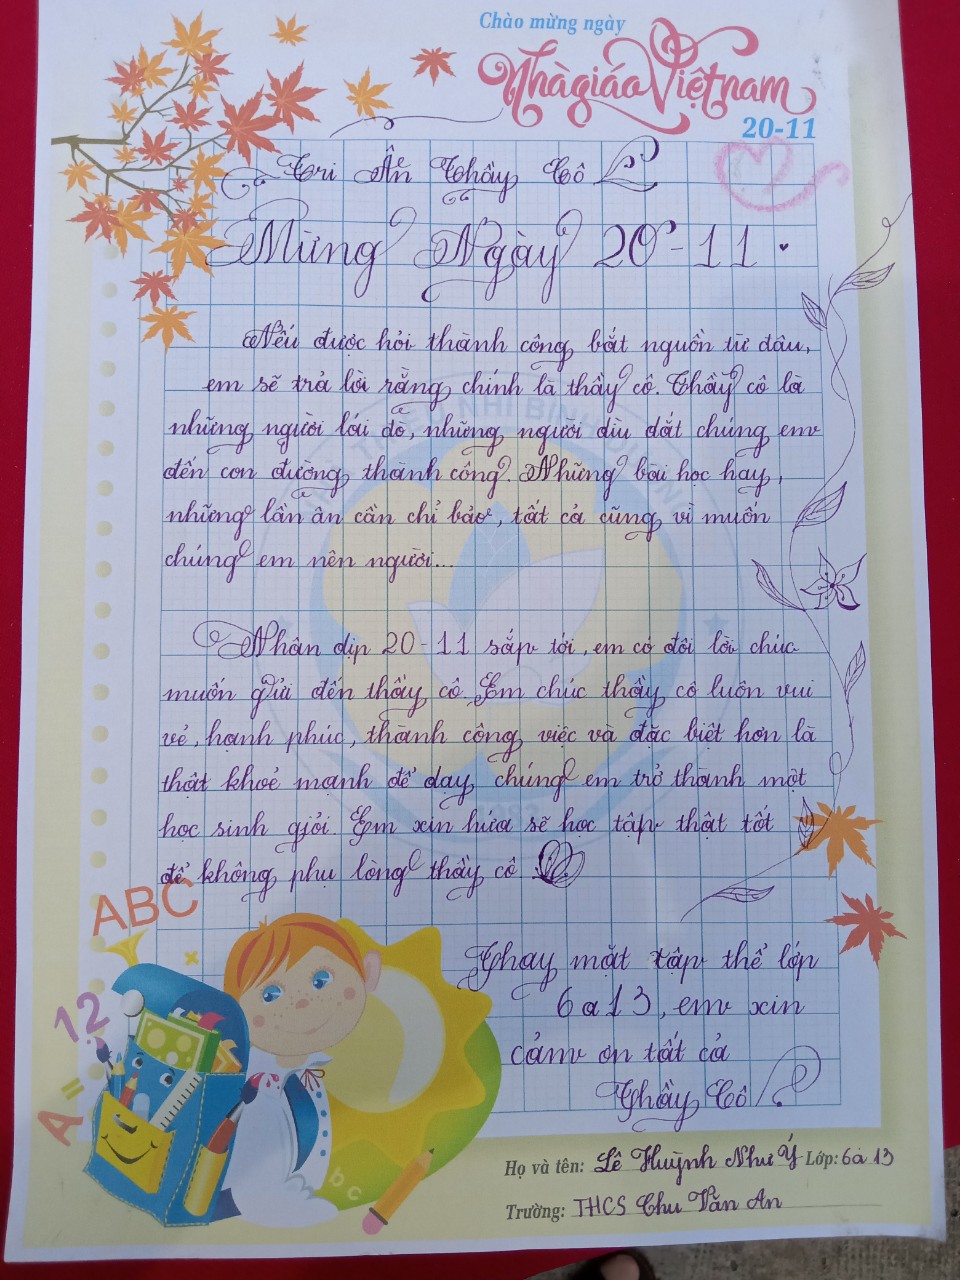 Chào mừng ngày
Nhà giáo Việt nam
20-11
Tri Ân Thầy Cô
Mừng Ngày 20-11
Nếu được hỏi thành công bắt nguồn từ đâu,
em sẽ trả lời rằng chính là thầy cô. Thầy cô là
những người lái đò, những người dìu dắt chúng em
đến con đường thành công. Những bài học hay,
những lần ân cần chỉ bảo, tất cả cũng vì muốn
chúng em nên người...
Nhân dịp 20-11 sắp tới, em có đôi lời chúc
muốn gửi đến thầy cô. Em chúc thầy cô luôn vui
vẻ, hạnh phúc, thành công việc và đặc biệt hơn là
thật khoẻ mạnh để dạy chúng em trở thành một
học sinh giỏi. Em xin hứa sẽ học tập thật tốt
để không phụ lòng thầy cô.
ABC
12
A =
Thay mặt tập thể lớp
6a13, em xin
cảm ơn tất cả
Thầy Cô
b c
Họ và tên: Lê Huỳnh Như Ý Lớp: 6a13
Trường: THCS Chu Văn An